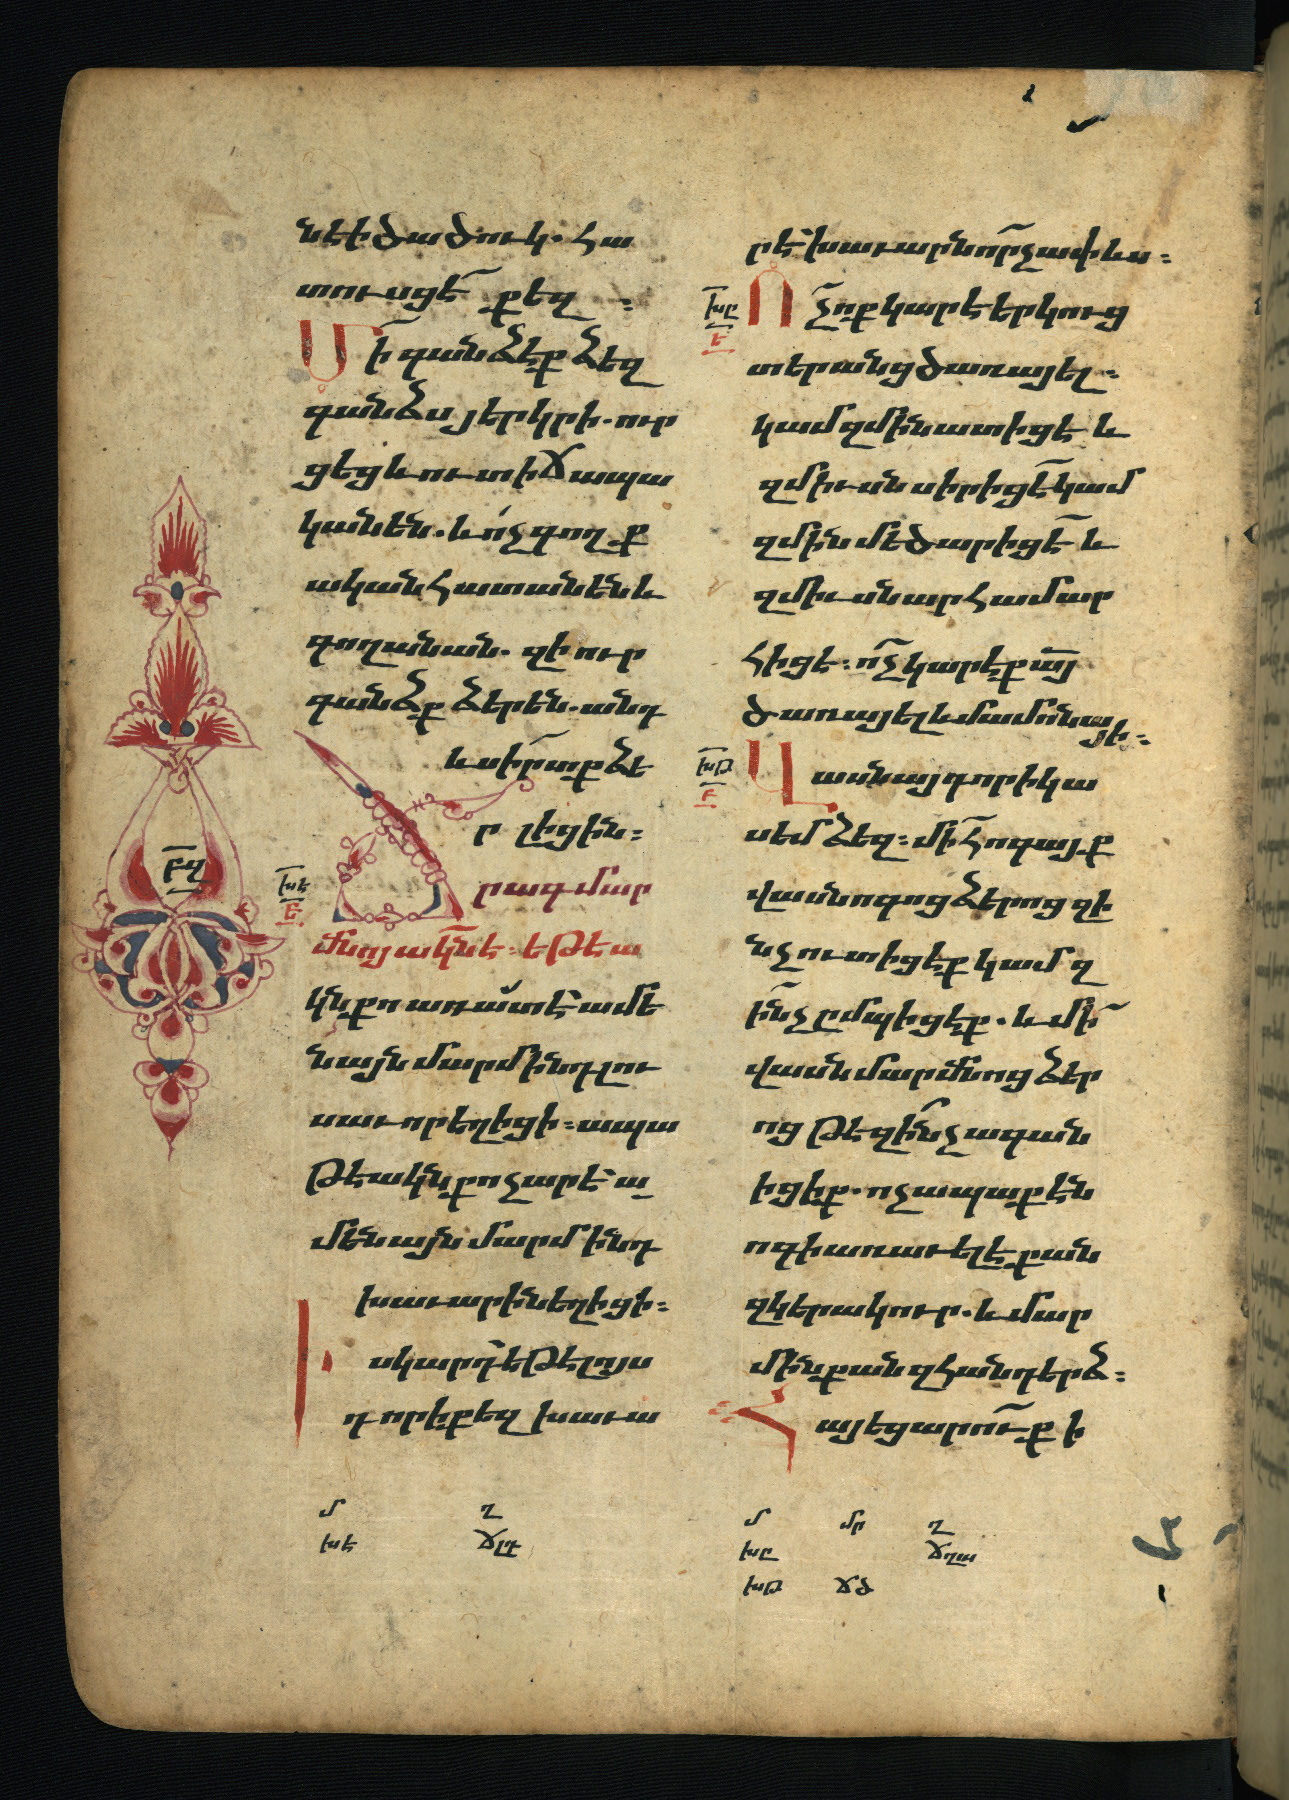 նէ ի ծածուկ. հա
տուսցէ քեզ :
Մի գանձէք ձեզ
գանձս յերկրի. ուր
ցեց և ուտիճ ապա
կանեն. և ուր գողք
ական հատանեն և
գողանան. զի ուր
գանձք ձերեն. անդ
և սիրտք ձե
ր լիցին :
ԽԵ
Ե
ԲԶ
Ճրագ մար
մնոյ ակն է : եթե ա
կն քո առատ է ամե
նայն մարմինդ լու
սաւոր եղիցի : ապա
թե ակն քո չար է ա
մենայն մարմինդ
խաւարին եղիցի :
Իսկ արդ եթե լոյս
դ որ ի քեզ խաւա
մ
ղ
խե
ճլդ
ր է խաւարն որչափ ևս :
ԽԸ
Ե
Ոչ ոք կարէ երկուց
տերանց ծառայել :
կամ զմին ատիցէ և
զմիւսն սիրիցէ կամ
զմին մեծարիցէ և
զմիւսն արհամար
հիցե : ոչ կարէք այ
ծառայել և մամոնայի :
ԽԹ
Բ
Վասն այդորիկ ա
սեմ ձեզ : մի հոգայք
վասն ոգոց ձերոց զի
նչ ուտիցէք կամ զ
ինչ ըմպիցէք. և մի
վասն մարմնոց ձեր
ոց թե զինչ ագան
իցիք. ոչ ապաքէն
ոգի առաւել է քան
զկերակուր. և մար
մին քան զհանդերձ :
Հայեցարուք ի
մ
մր
ղ
խը
ճղա
խթ
ճծ